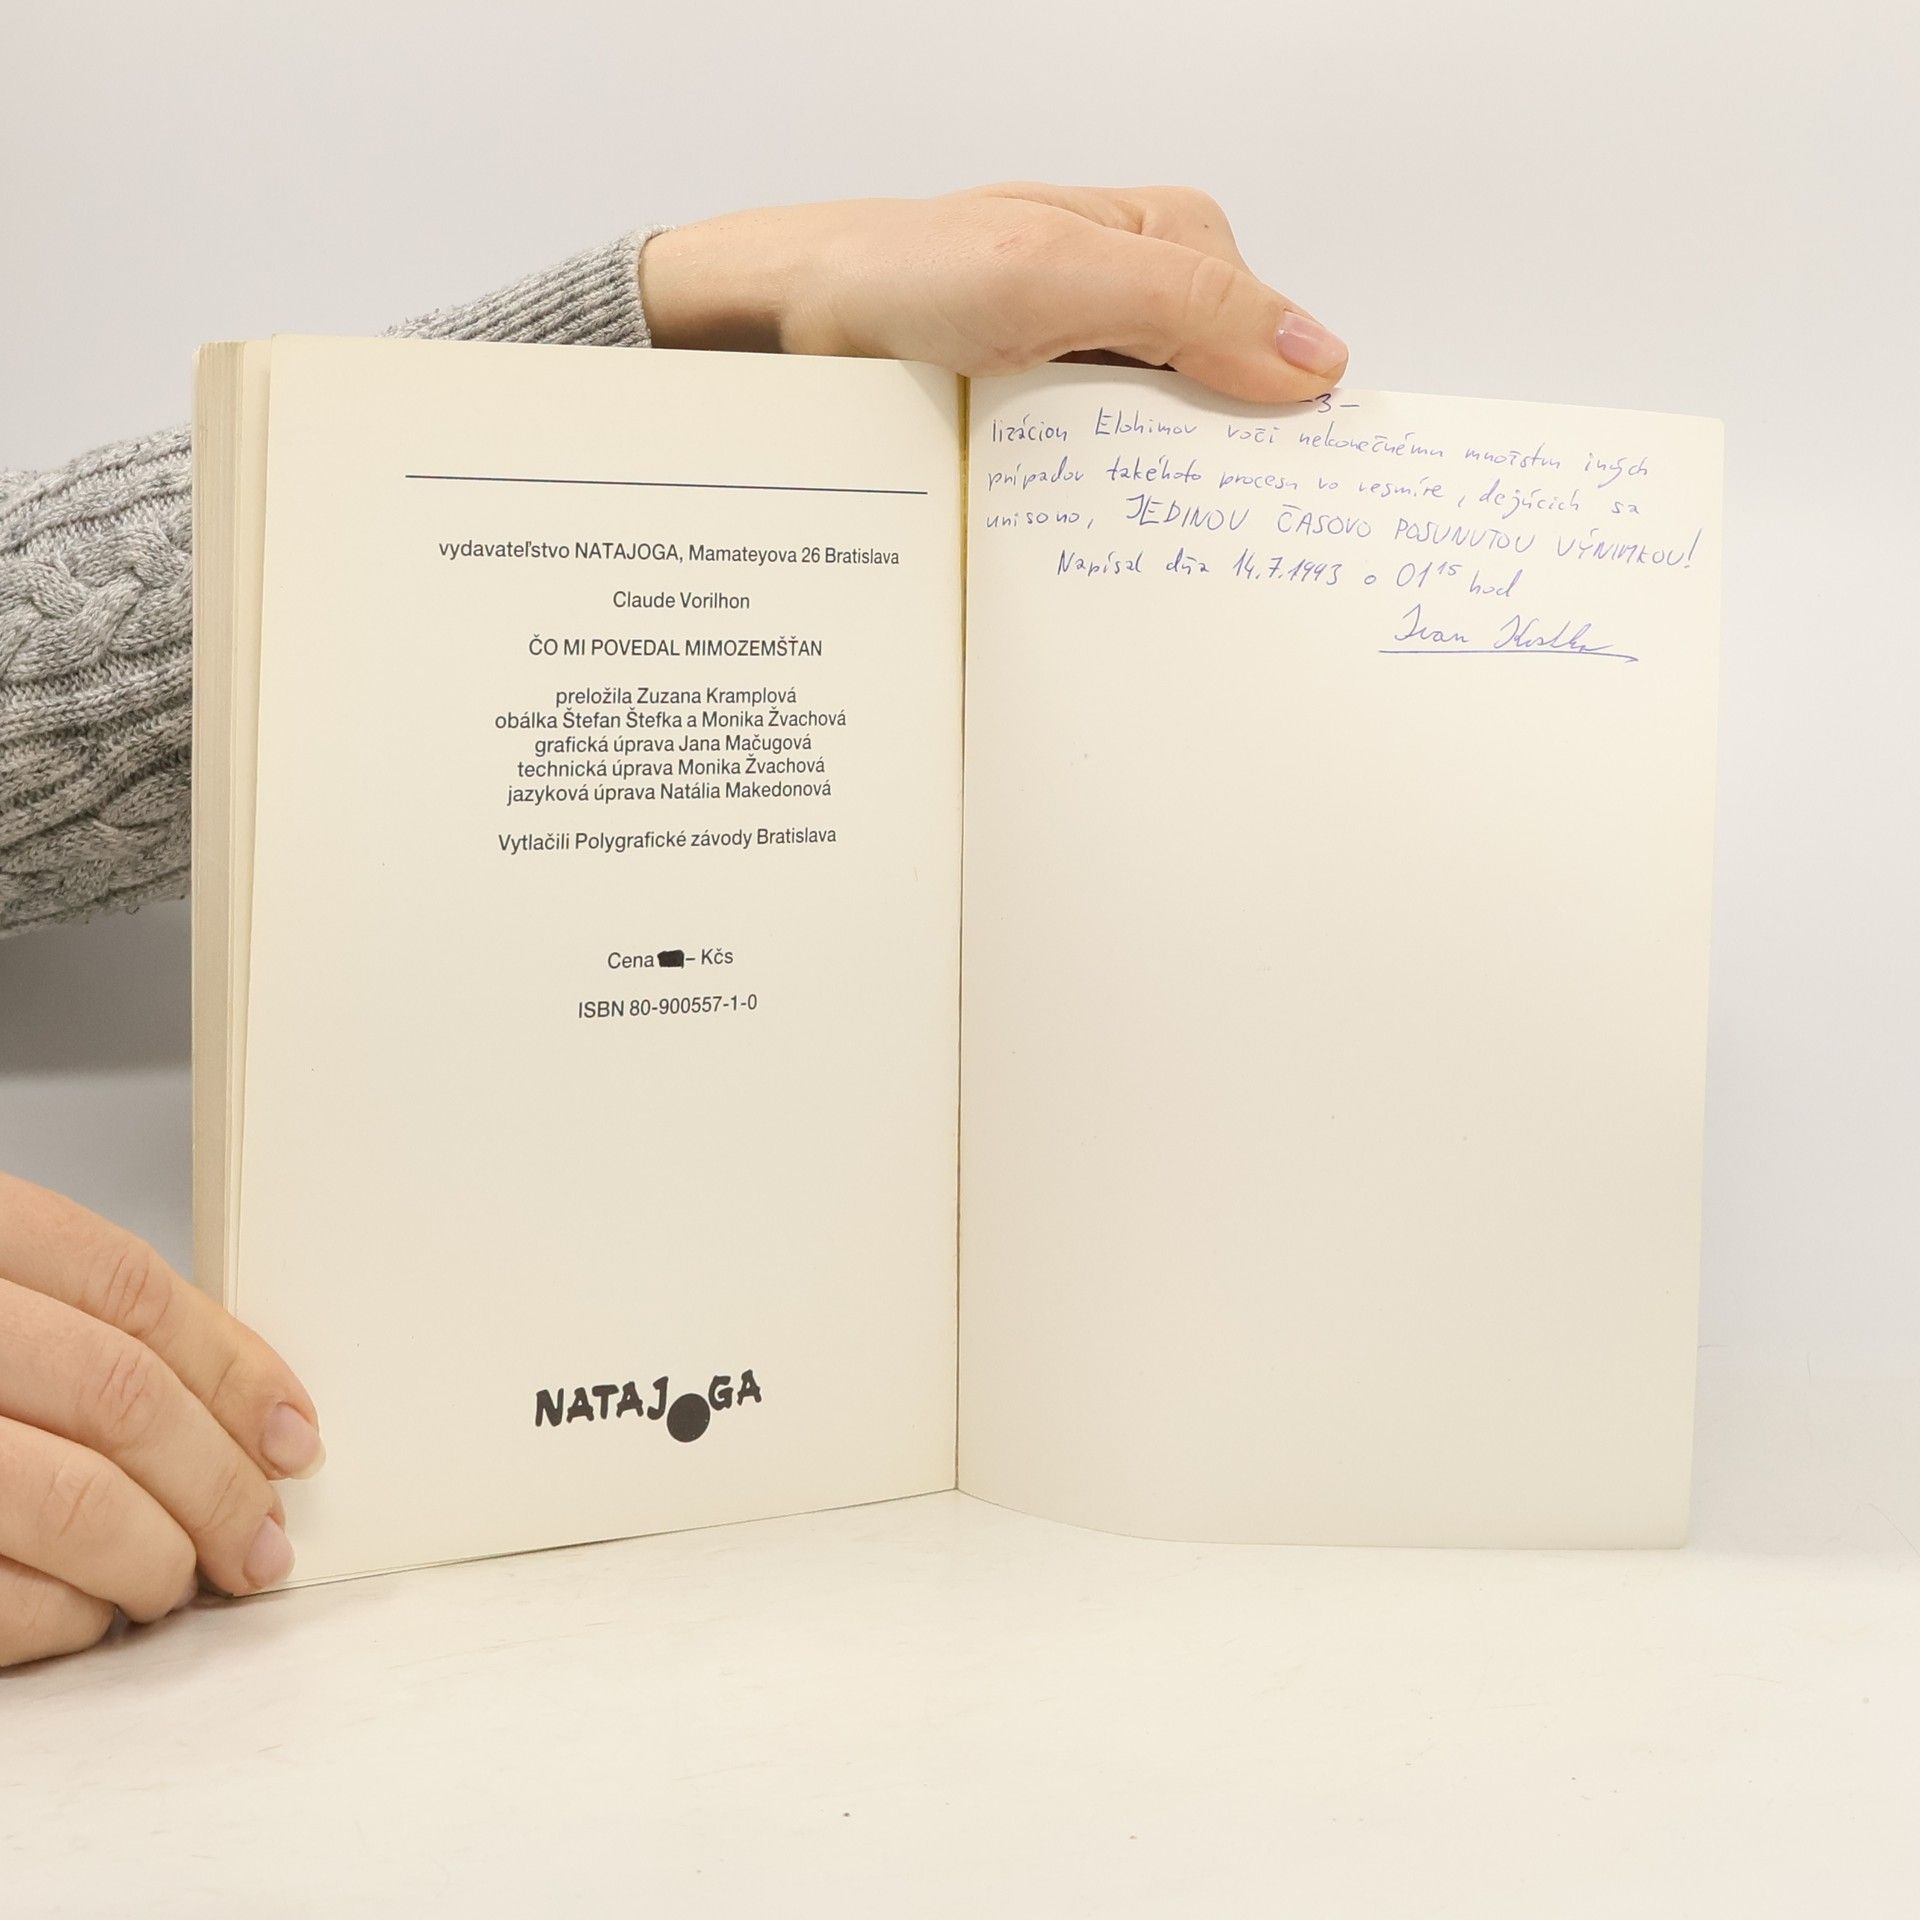 vydavateľstvo NATAJOGA, Mamateyova 26 Bratislava
Claude Vorilhon
ČO MI POVEDAL MIMOZEMŠŤAN
preložila Zuzana Kramplová
obálka Štefan Štefka a Monika Žvachová
grafická úprava Jana Mačugová
technická úprava Monika Žvachová
jazyková úprava Natália Makedonová
Vytlačili Polygrafické závody Bratislava
Cena – Kčs
ISBN 80-900557-1-0
NATAJOGA
-3-
lizáciou Elohimov voči nekonečnému množstvu iných
prípadov takéhoto procesu vo vesmíre, dejúcich sa
unisono, JEDINOU ČASOVO POSUNUTOU VÝNIMKOU!
Napísal dňa 14.7.1993 o 01 15 hod
Ivan